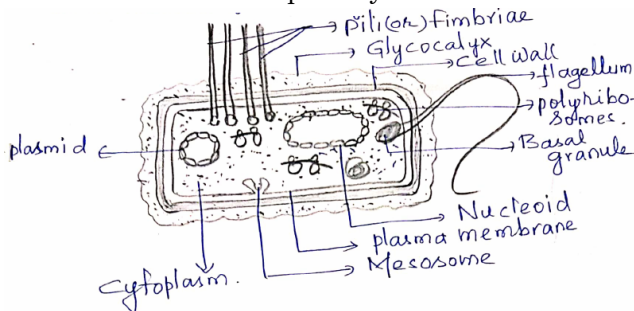 pili(or) fimbriae
Glycocalyx
cell wall
flagellum
polyribo-
somes.
Basal
granule
plasmid
Nucleoid
plasma membrane
Mesosome
Cytoplasm.